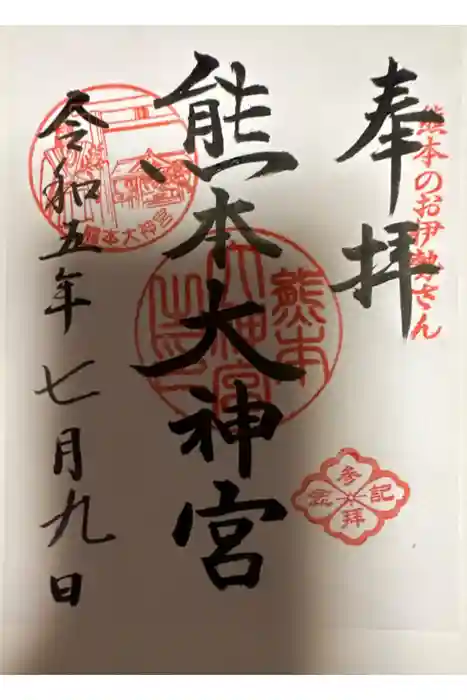 奉拝
熊本のお伊勢さん
熊本大神宮
熊本大神宮之印
熊本大神宮
参拝記念
令和五年七月九日